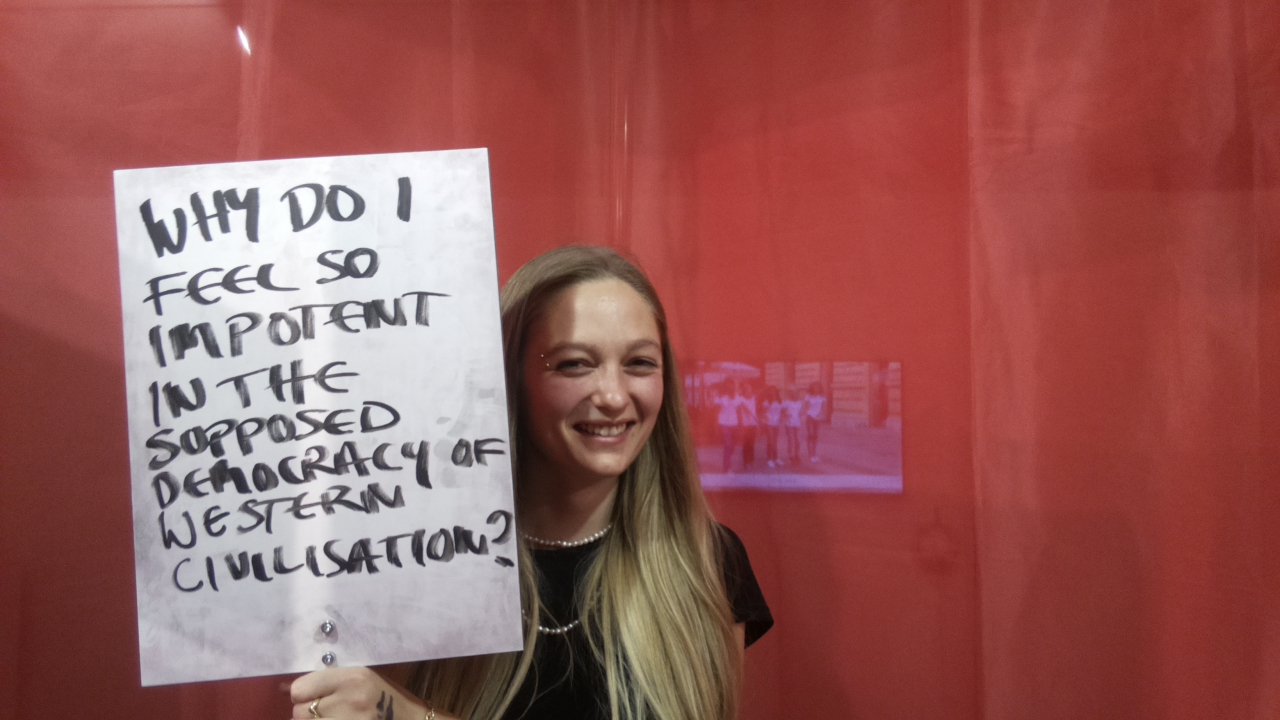 WHY DO I
FEEL SO
IMPOTENT
IN THE
SOPPOSED
DEMOCRACY OF
WESTERN
CIVILISATION?